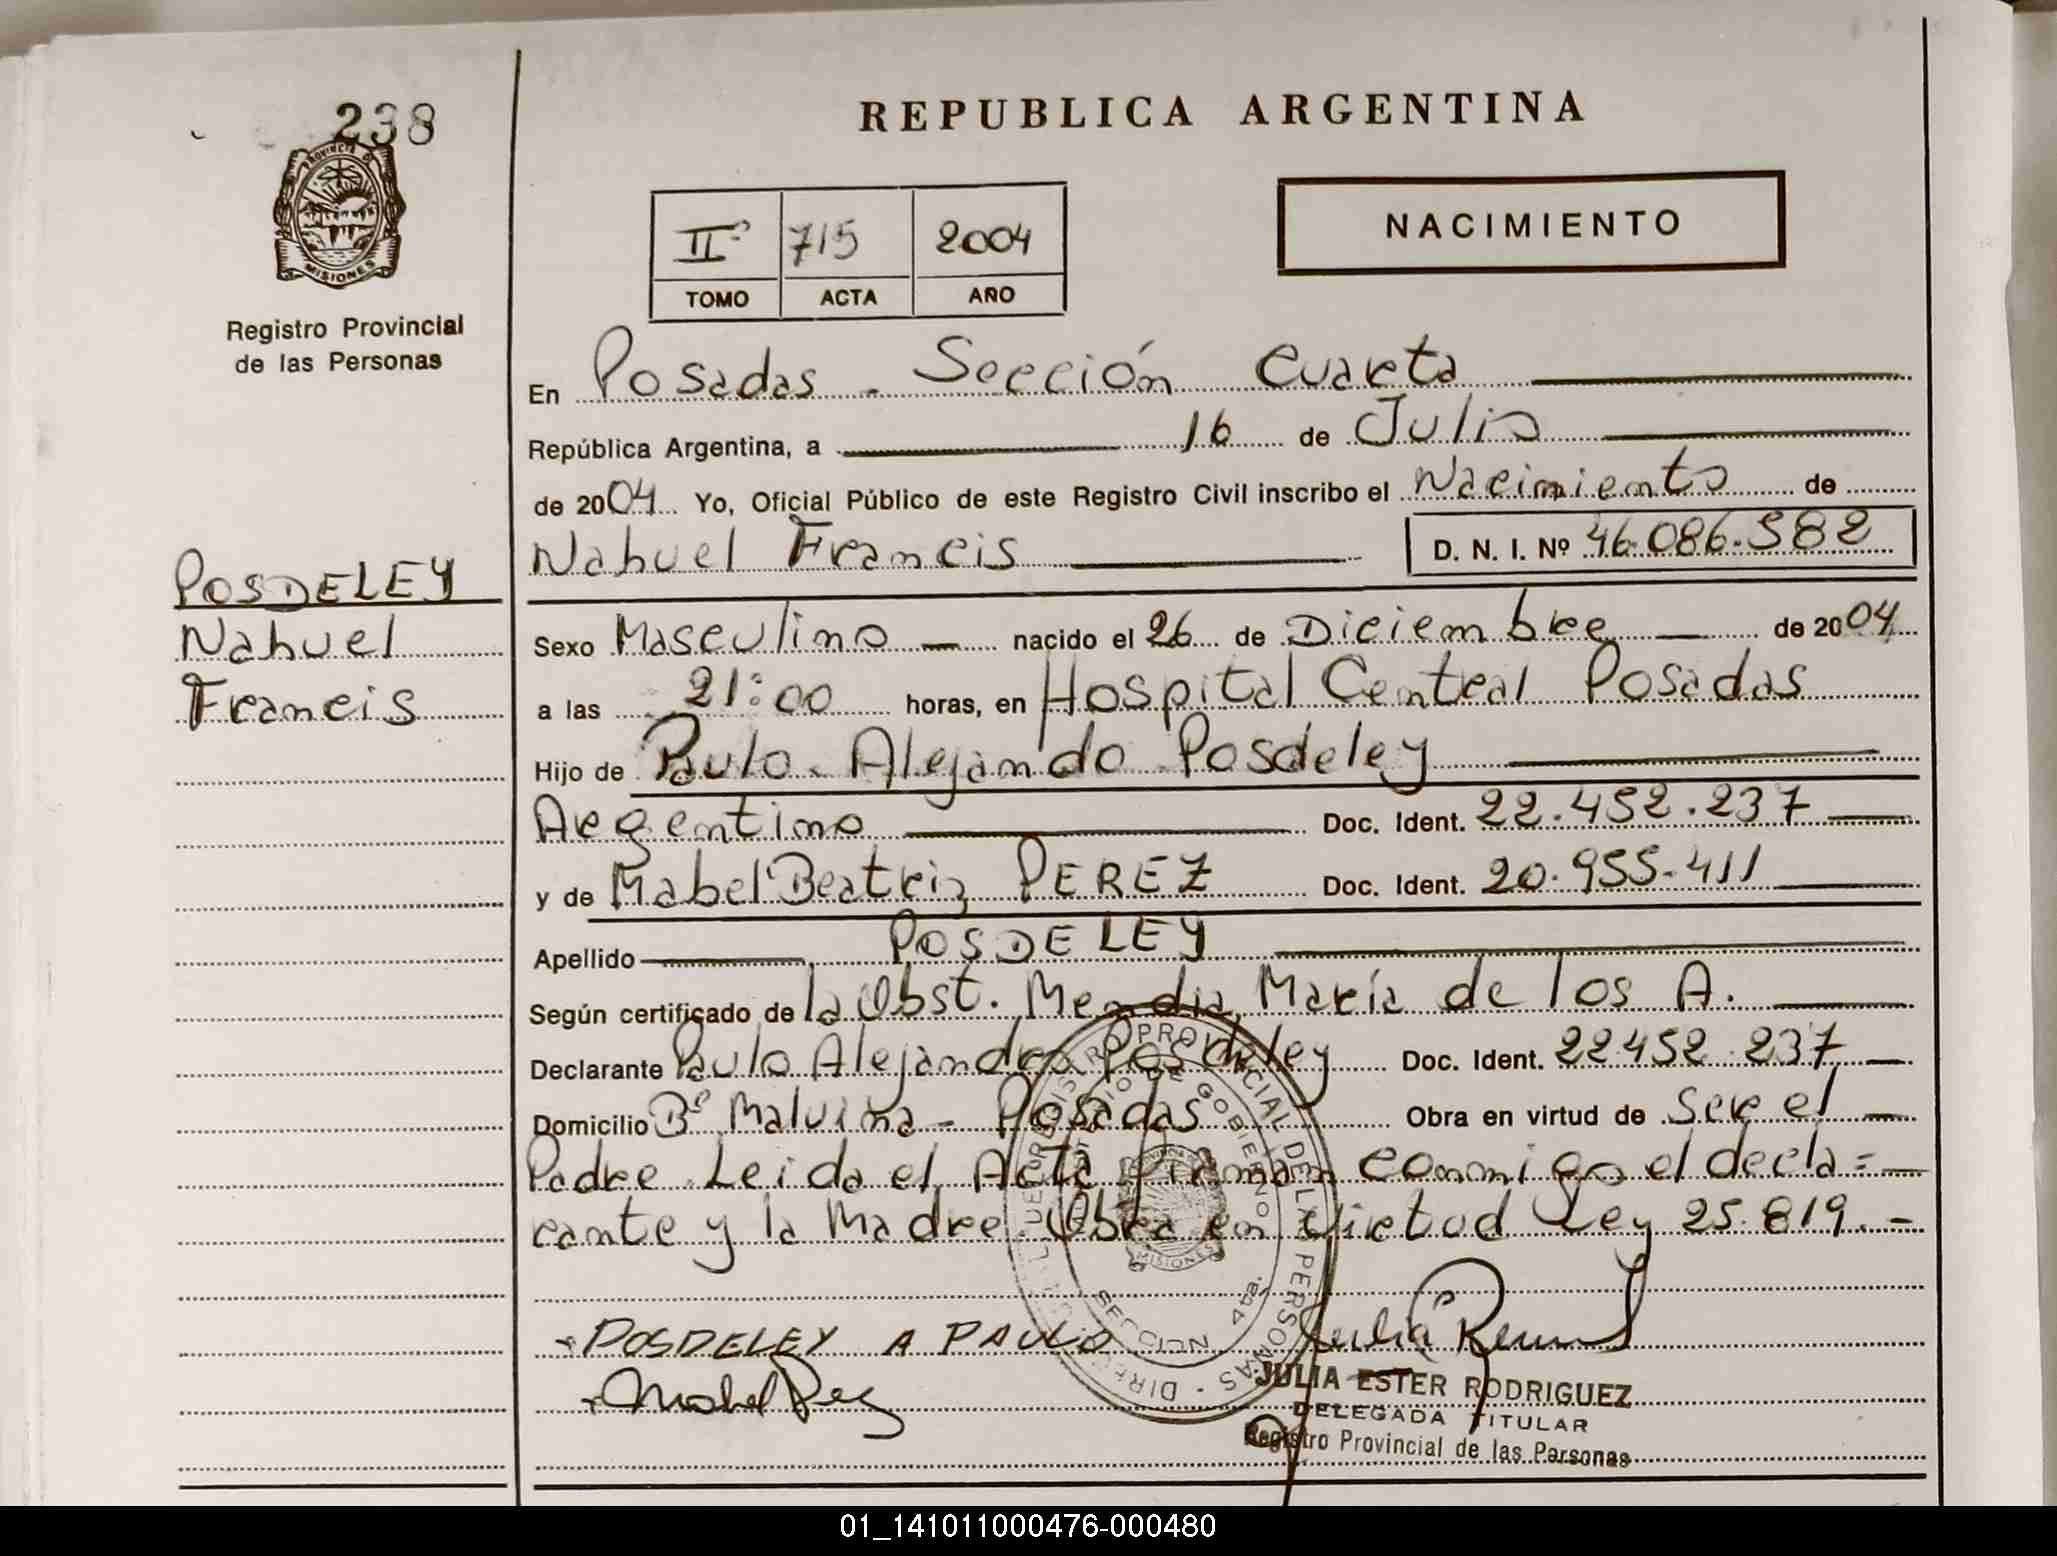 238
PROVINCIA DE
MISIONES
Registro Provincial
de las Personas
POSDELEY
Nahuel
Francis
REPUBLICA ARGENTINA
IIº 715 2004
TOMO ACTA AÑO
NACIMIENTO
En Posadas - Sección Cuarta
República Argentina, a 16 de Julio
de 2004 Yo, Oficial Público de este Registro Civil inscribo el Nacimiento de
Nahuel Francis D. N. I. Nº 46.086.582
Sexo Masculino nacido el 26 de Diciembre de 2004
a las 21:00 horas, en Hospital Central Posadas
Hijo de Paulo Alejando Posdeley
Argentino Doc. Ident. 22.452.237
y de Mabel Beatriz PEREZ Doc. Ident. 20.955.411
Apellido POSDELEY
Según certificado de la Obst. María de los A.
Declarante Paulo Alejandro Posdeley Doc. Ident. 22452.237
Domicilio Bº Malvina - Posadas Obra en virtud de Ser el
Padre Leida el Acta Firman conmigo el decla=
rante y la Madre Obra en Virtud Ley 25.819.-
POSDELEY A PAULO
Mabel Perez
JULIA ESTER RODRIGUEZ
DELEGADA TITULAR
Registro Provincial de las Personas
SECCION 4ta.
01_141011000476-000480